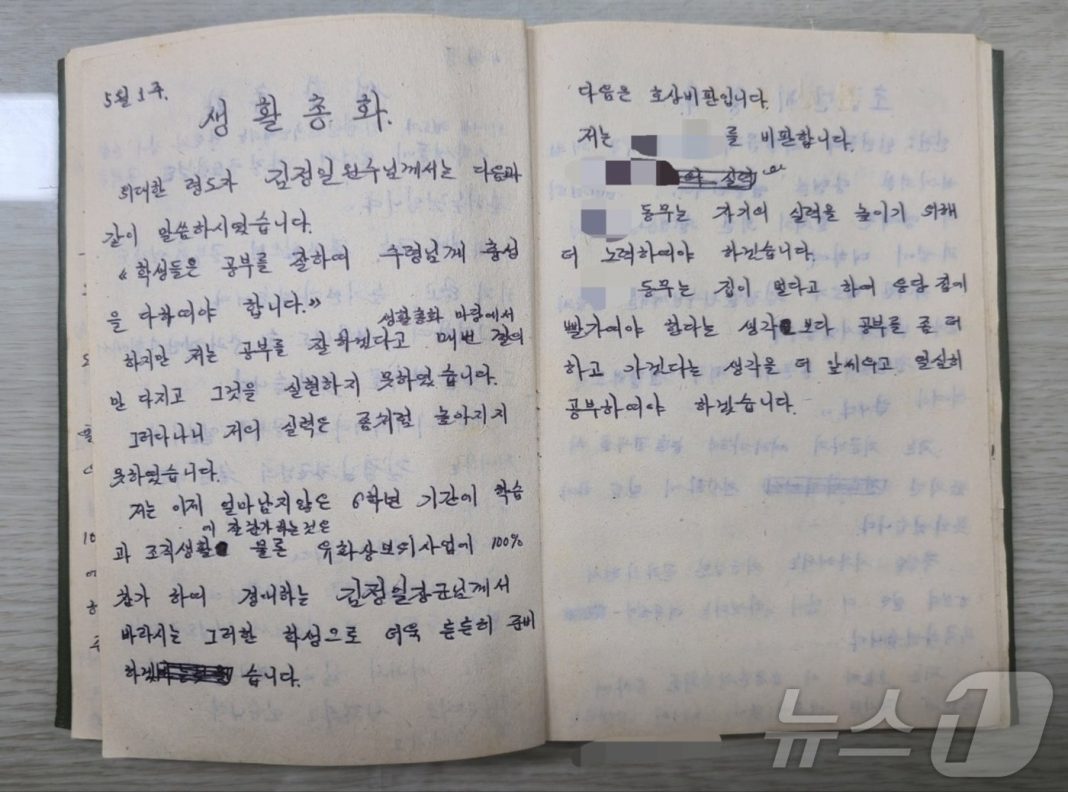 5월 1주.
생활총화.
위대한 령도자 김정일원수님께서는 다음과
같이 말씀하시였습니다.
《학생들은 공부를 잘하여 수령님께 충성
을 다하여야 합니다.》
생활총화 마당에서
하지만 저는 공부를 잘하겠다고 매번 결의
만 다지고 그것을 실현하지 못하였습니다.
그러다나니 저의 실력은 좀처럼 높아지지
못하였습니다.
저는 이제 얼마남지않은 6학년 기간에 학습
에 참가하는것은
과 조직생활 물론 우화상보위사업에 100%
참가 하여 경애하는 김정일장군님께서
바라시는 그러한 학생으로 더욱 튼튼히 준비
하겠습니다.
다음은 호상비판입니다.
저는 를 비판합니다.
동무는 자기의 실력을 높이기 위해
더 노력하여야 하겠습니다.
동무는 집이 멀다고 하여 응당 집에
빨가여야 한다는 생각보다 공부를 좀 더
하고 가겠다는 생각을 더 앞세우고 열실히
공부하여야 하겠습니다.
뉴스1